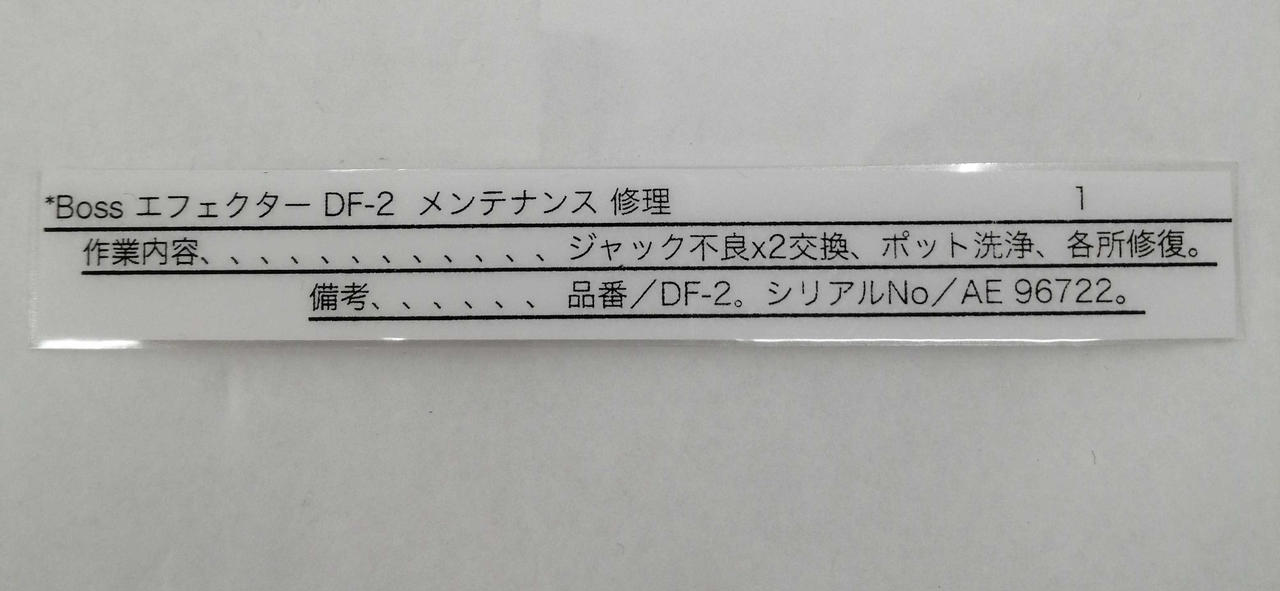 *Boss エフェクター DF-2 メンテナンス 修理 1
作業内容、、、、、、、、、、、、ジャック不良x2交換、ポット洗浄、各所修復。
備考、、、、、、 品番／DF-2。シリアルNo／AE 96722。